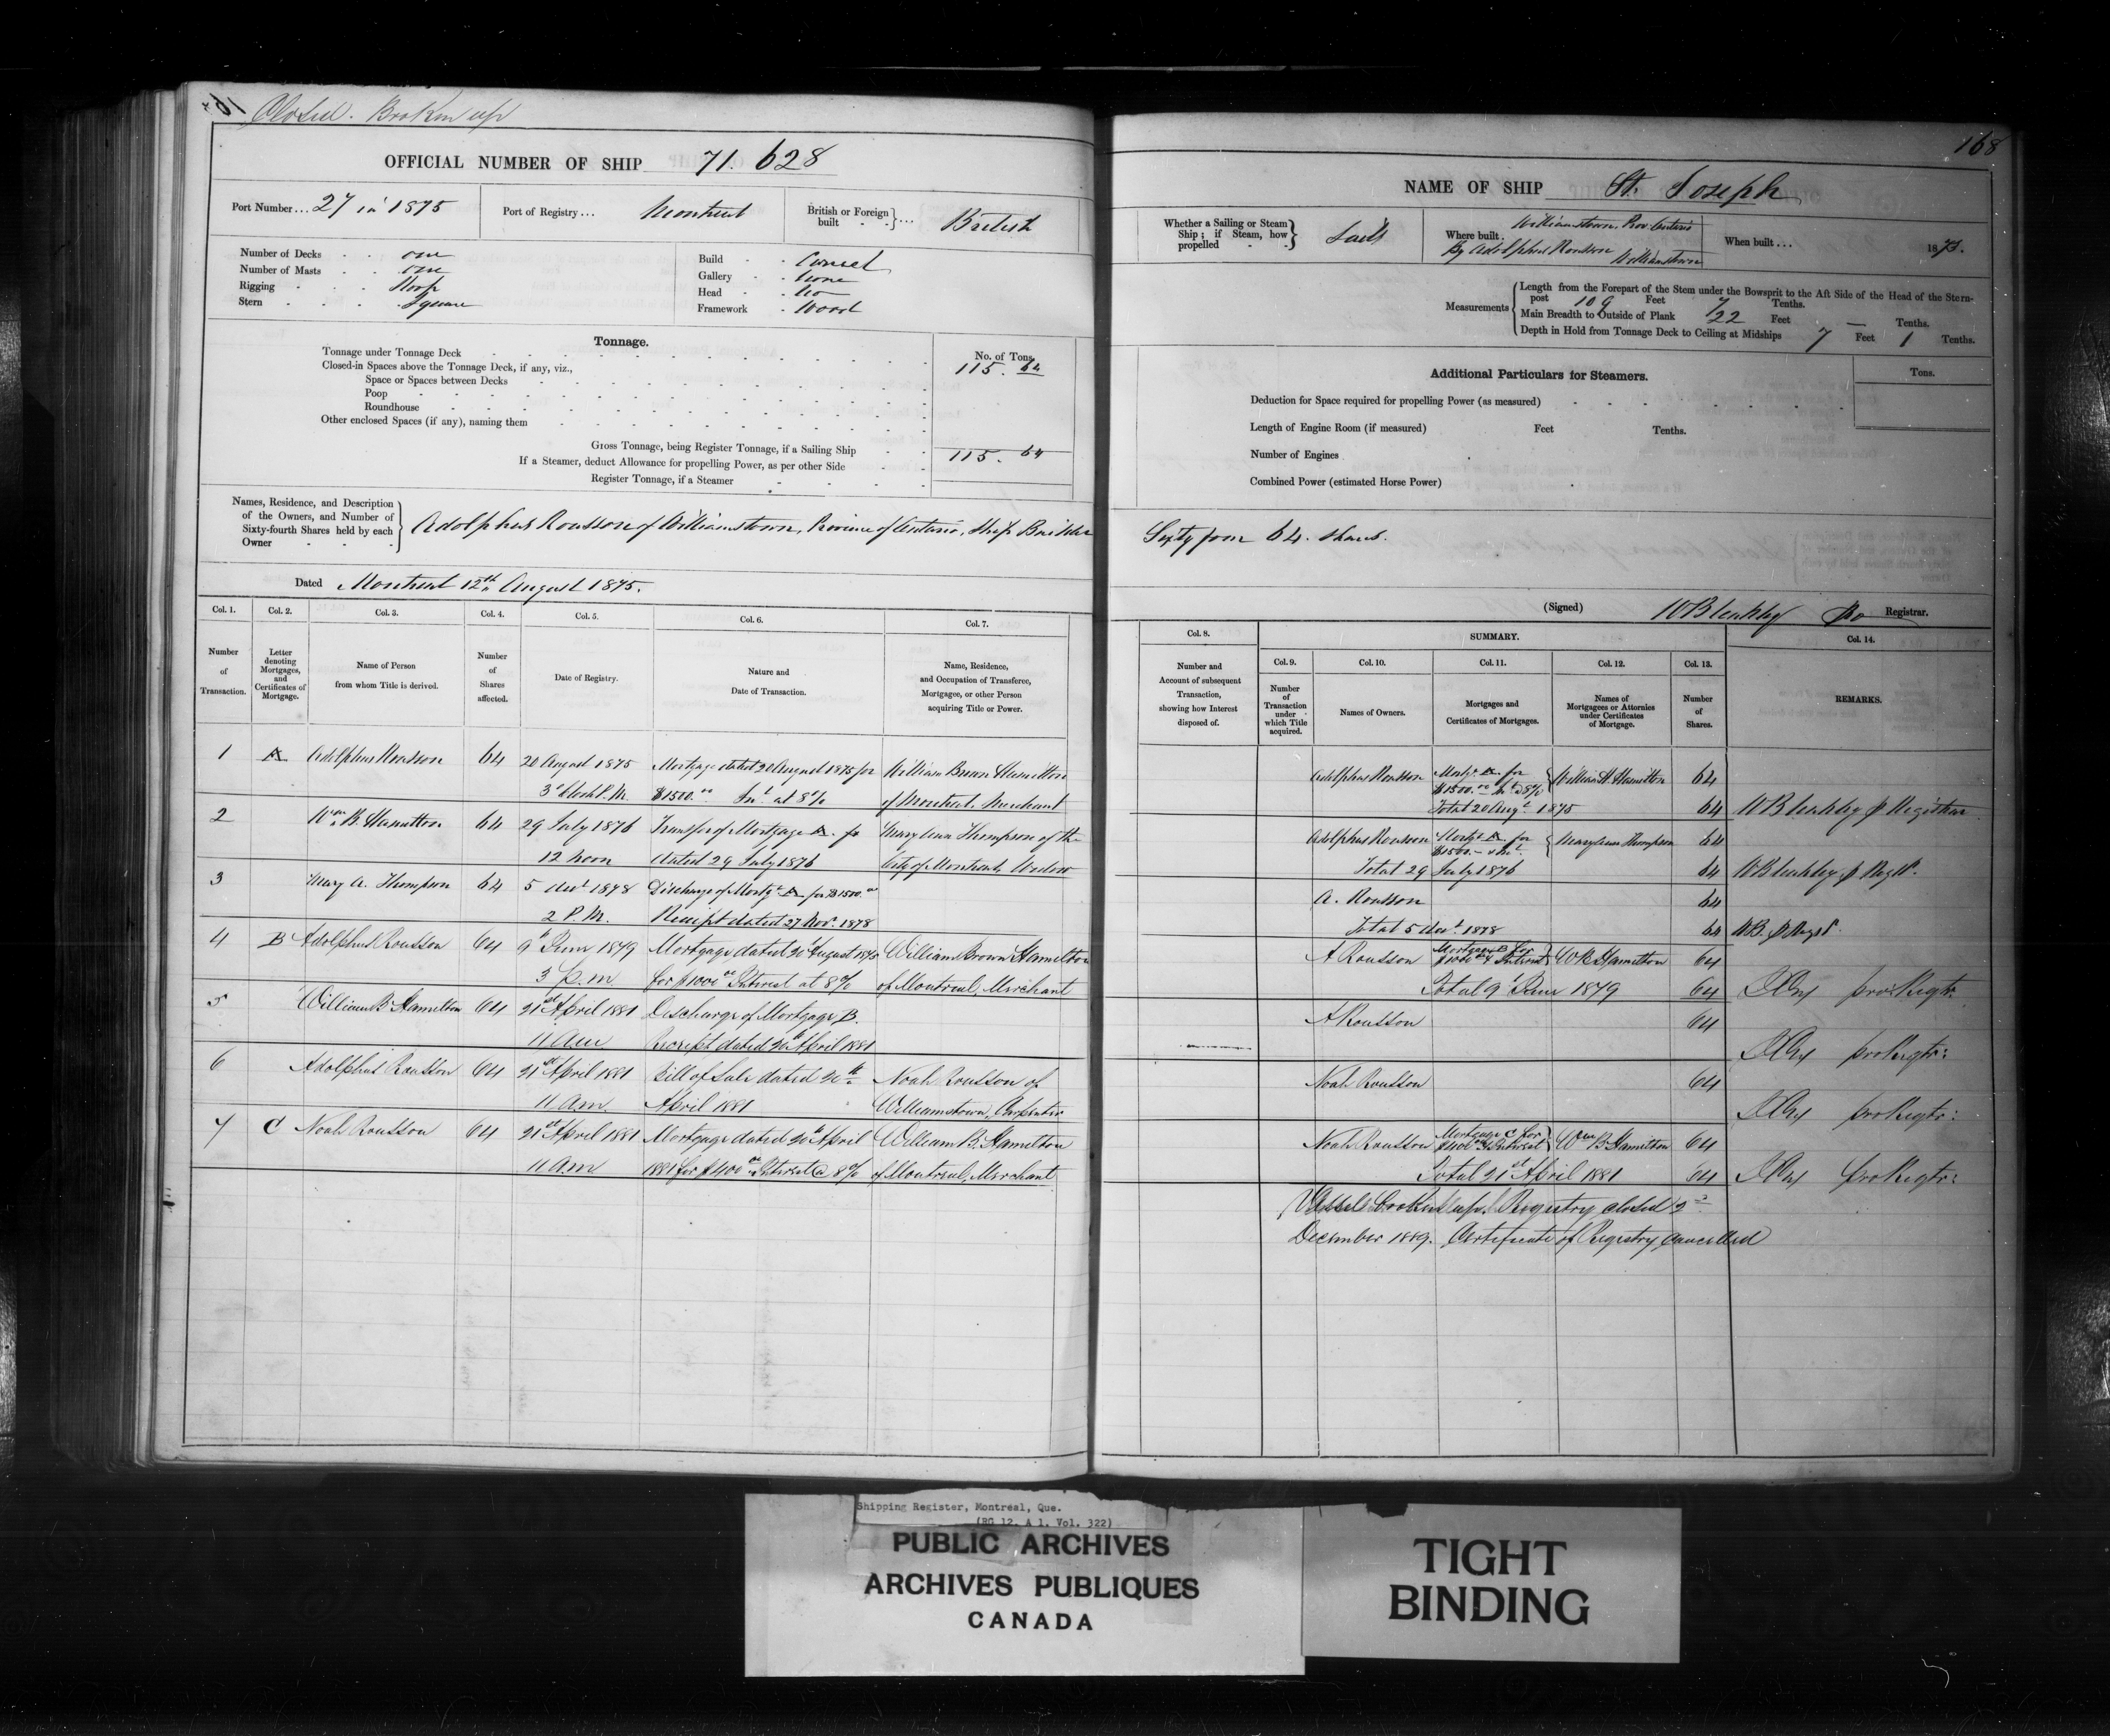 Closed. Broken up
OFFICIAL NUMBER OF SHIP 71. 628
Port Number... 27 in 1875
Port of Registry... Montreal
British or Foreign built ... British
Number of Decks one
Number of Masts one
Rigging Sloop
Stern Square
Build Carvel
Gallery None
Head No
Framework Wood
Tonnage.
No. of Tons.
Tonnage under Tonnage Deck 115. 64
Closed-in Spaces above the Tonnage Deck, if any, viz.,
Space or Spaces between Decks
Poop
Roundhouse
Other enclosed Spaces (if any), naming them
Gross Tonnage, being Register Tonnage, if a Sailing Ship 115. 64
If a Steamer, deduct Allowance for propelling Power, as per other Side
Register Tonnage, if a Steamer
Names, Residence, and Description of the Owners, and Number of Sixty-fourth Shares held by each Owner
Adolphus Rousson of Williamstown, Province of Ontario, Ship Builder
Dated Montreal 12th August 1875.
Col. 1. Col. 2. Col. 3. Col. 4. Col. 5. Col. 6. Col. 7.
Number of Transaction.
Letter denoting Mortgages, and Certificates of Mortgage.
Name of Person from whom Title is derived.
Number of Shares affected.
Date of Registry.
Nature and Date of Transaction.
Name, Residence, and Occupation of Transferee, Mortgagee, or other Person acquiring Title or Power.
1 A Adolphus Rousson 64 20 August 1875 Mortgage dated 20 August 1875 for William Brown Hamilton
3 o'clock P.M. $1500.00 Int. at 8% of Montreal. Merchant
2 Wm B. Hamilton 64 29 July 1876 Transfer of Mortgage A. fr Mary Ann Thompson of the
12 noon dated 29 July 1876 City of Montreal, Widow
3 Mary A. Thompson 64 5 Decr 1878 Discharge of Mortge A for $1500.00
2 P.M. Receipt dated 27 Nov. 1878
4 B Adolphus Rousson 64 9th June 1879 Mortgage dated 20th August 1875 William Brown Hamilton
3 p.m for $1000 00 Interest at 8% of Montreal, Merchant
5 William B Hamilton 64 21st April 1881 Discharge of Mortgage B.
11 Am Receipt dated 20th April 1881
6 Adolphus Rousson 64 21st April 1881 Bill of Sale dated 20th Noah Rousson of
11 Am. April 1881 Williamstown, Carpenter
7 C Noah Rousson 64 21st April 1881 Mortgage dated 20th April William B. Hamilton
11 Am 1881 for $400 00 Interest @ 8% of Montreal, Merchant
168
NAME OF SHIP St. Joseph
Whether a Sailing or Steam Ship; if Steam, how propelled Sails
Where built. Williamstown. Prov Ontario
By Adolphus Rousson Williamstown
When built... 1873.
Measurements
Length from the Forepart of the Stem under the Bowsprit to the Aft Side of the Head of the Stern-
post 109 Feet 7 Tenths.
Main Breadth to Outside of Plank 22 Feet — Tenths.
Depth in Hold from Tonnage Deck to Ceiling at Midships 7 Feet 1 Tenths.
Additional Particulars for Steamers.
Tons.
Deduction for Space required for propelling Power (as measured)
Length of Engine Room (if measured) Feet Tenths.
Number of Engines
Combined Power (estimated Horse Power)
Sixty four 64. shares.
(Signed) WB leakley Pro Registrar.
Col. 8. SUMMARY. Col. 14.
Col. 9. Col. 10. Col. 11. Col. 12. Col. 13.
Number and Account of subsequent Transaction, showing how Interest disposed of.
Number of Transaction under which Title acquired.
Names of Owners.
Mortgages and Certificates of Mortgages.
Names of Mortgagees or Attornies under Certificates of Mortgage.
Number of Shares.
REMARKS.
Adolphus Rousson Mortg. A for $1500.00 Int @ 8% William B. Hamilton 64
Total 20 Augt 1875 64 WB leakley p Registrar
Adolphus Rousson Mortge A for $1500.- & Int. Mary Ann Thompson 64
Total 29 July 1876 64 WB leakley p Regr.
A. Rousson 64
Total 5 Decr. 1878 64 WB. p Regr.
A Rousson Mortgage B for $1000 00 & Interest W B Hamilton 64
Total 9th June 1879 64 pro Regtr.
A Rousson 64
pro Regtr:
Noah Rousson 64
pro Regtr:
Noah Rousson Mortgage C for $400 00 & Interest Wm B Hamilton 64
Total 21st April 1881 64 pro Regtr:
Vessel broken up. Registry closed 2nd
December 1889. Certificate of Registry Cancelled
Shipping Register, Montreal, Que.
(RG 12, A 1, Vol. 322)
PUBLIC ARCHIVES
ARCHIVES PUBLIQUES
CANADA
TIGHT
BINDING